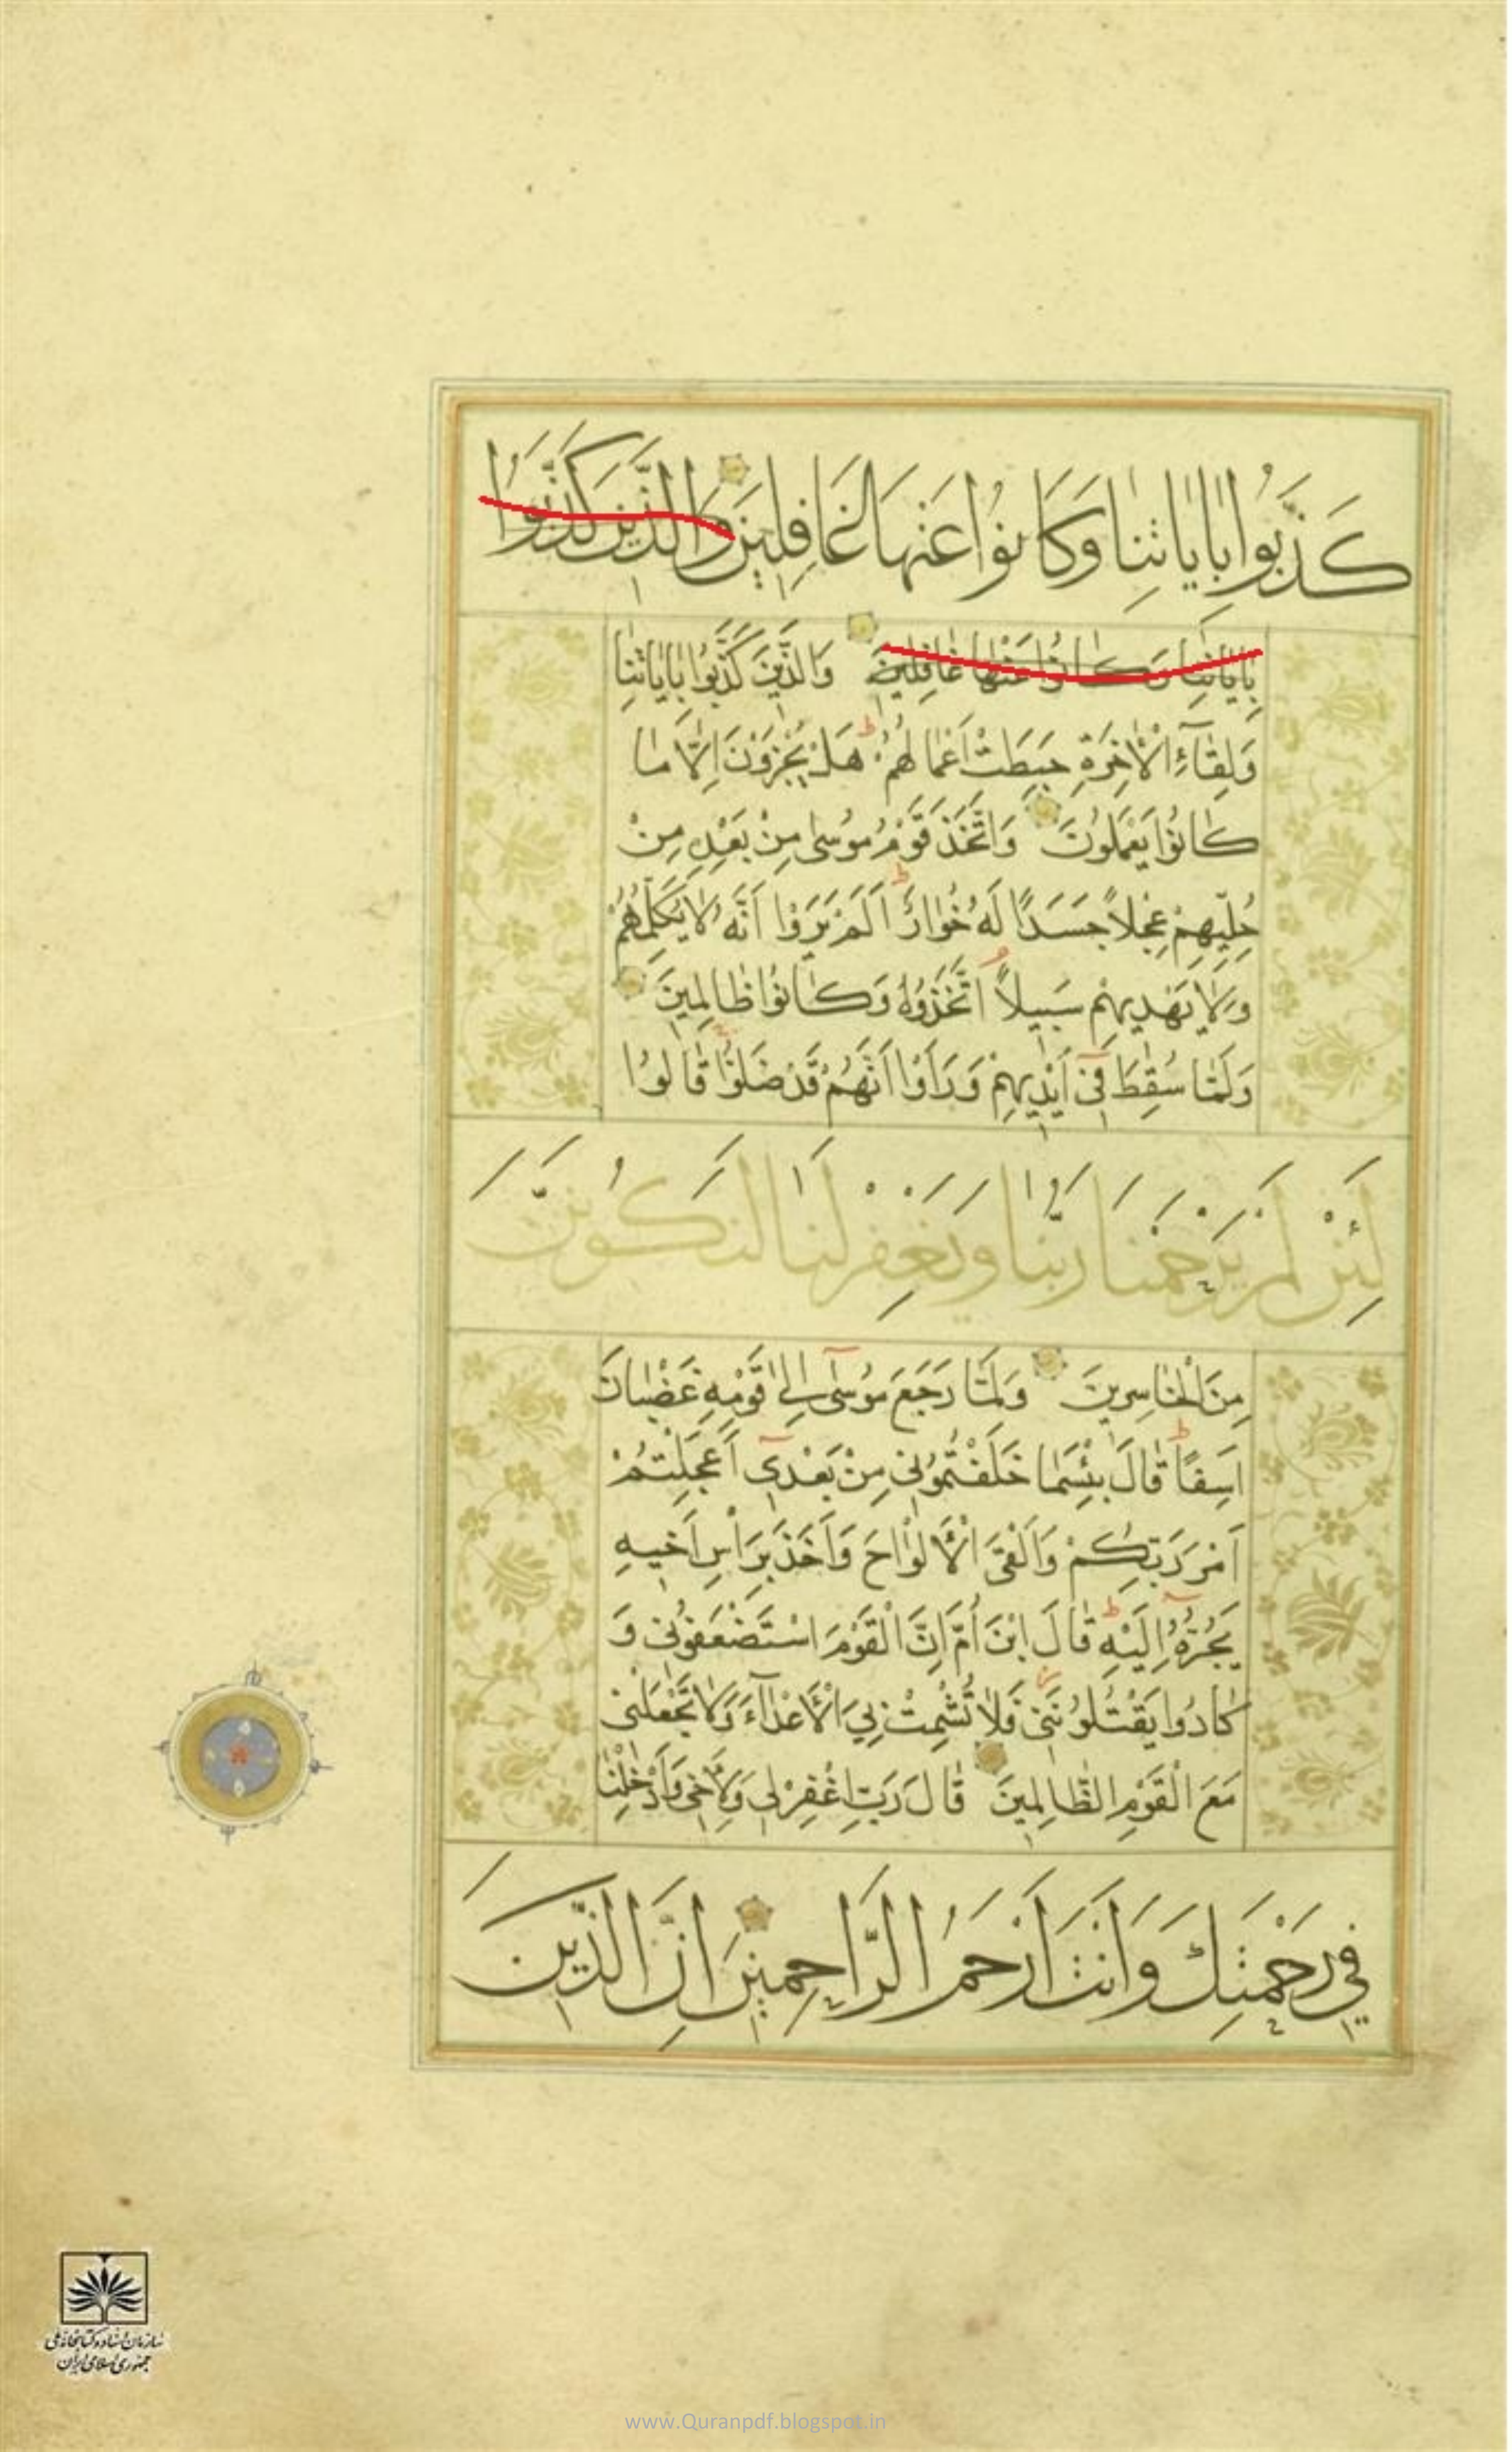 كَذَّبُوا بِاٰيَاتِنَا وَكَانُوا عَنْهَا غَافِلِينَ وَالَّذِينَ كَذَّبُوا
بِاٰيَاتِنَا وَكَانُوا عَنْهَا غَافِلِينَ وَالَّذِينَ كَذَّبُوا بِاٰيَاتِنَا
وَلِقَآءِ الْاٰخِرَةِ حَبِطَتْ اَعْمَالُهُمْ هَلْ يُجْزَوْنَ اِلَّا مَا
كَانُوا يَعْمَلُونَ وَاتَّخَذَ قَوْمُ مُوسٰى مِنْ بَعْدِهِ مِنْ
حُلِيِّهِمْ عِجْلاً جَسَدًا لَهُ خُوَارٌ اَلَمْ يَرَوْا اَنَّهُ لَا يُكَلِّمُهُمْ
وَلَا يَهْدِيهِمْ سَبِيلاً اتَّخَذُوهُ وَكَانُوا ظَالِمِينَ
وَلَمَّا سُقِطَ فِىٓ اَيْدِيهِمْ وَرَاَوْا اَنَّهُمْ قَدْ ضَلُّوا قَالُوا
لَئِنْ لَمْ يَرْحَمْنَا رَبُّنَا وَيَغْفِرْ لَنَا لَنَكُونَنَّ
مِنَ الْخَاسِرِينَ وَلَمَّا رَجَعَ مُوسٰىٓ اِلٰى قَوْمِهِ غَضْبَانَ
اَسِفًا قَالَ بِئْسَمَا خَلَفْتُمُونِى مِنْ بَعْدِىٓ اَعَجِلْتُمْ
اَمْرَ رَبِّكُمْ وَاَلْقَى الْاَلْوَاحَ وَاَخَذَ بِرَاْسِ اَخِيهِ
يَجُرُّهُٓ اِلَيْهِ قَالَ ابْنَ اُمَّ اِنَّ الْقَوْمَ اسْتَضْعَفُونِى وَ
كَادُوا يَقْتُلُونَنِى فَلَا تُشْمِتْ بِىَ الْاَعْدَآءَ وَلَا تَجْعَلْنِى
مَعَ الْقَوْمِ الظَّالِمِينَ قَالَ رَبِّ اغْفِرْ لِى وَلِاَخِى وَاَدْخِلْنَا
فِي رَحْمَتِكَ وَاَنْتَ اَرْحَمُ الرَّاحِمِينَ اِنَّ الَّذِينَ
سازمان اسناد و کتابخانه ملی
جمهوری اسلامی ایران
www.Quranpdf.blogspot.in